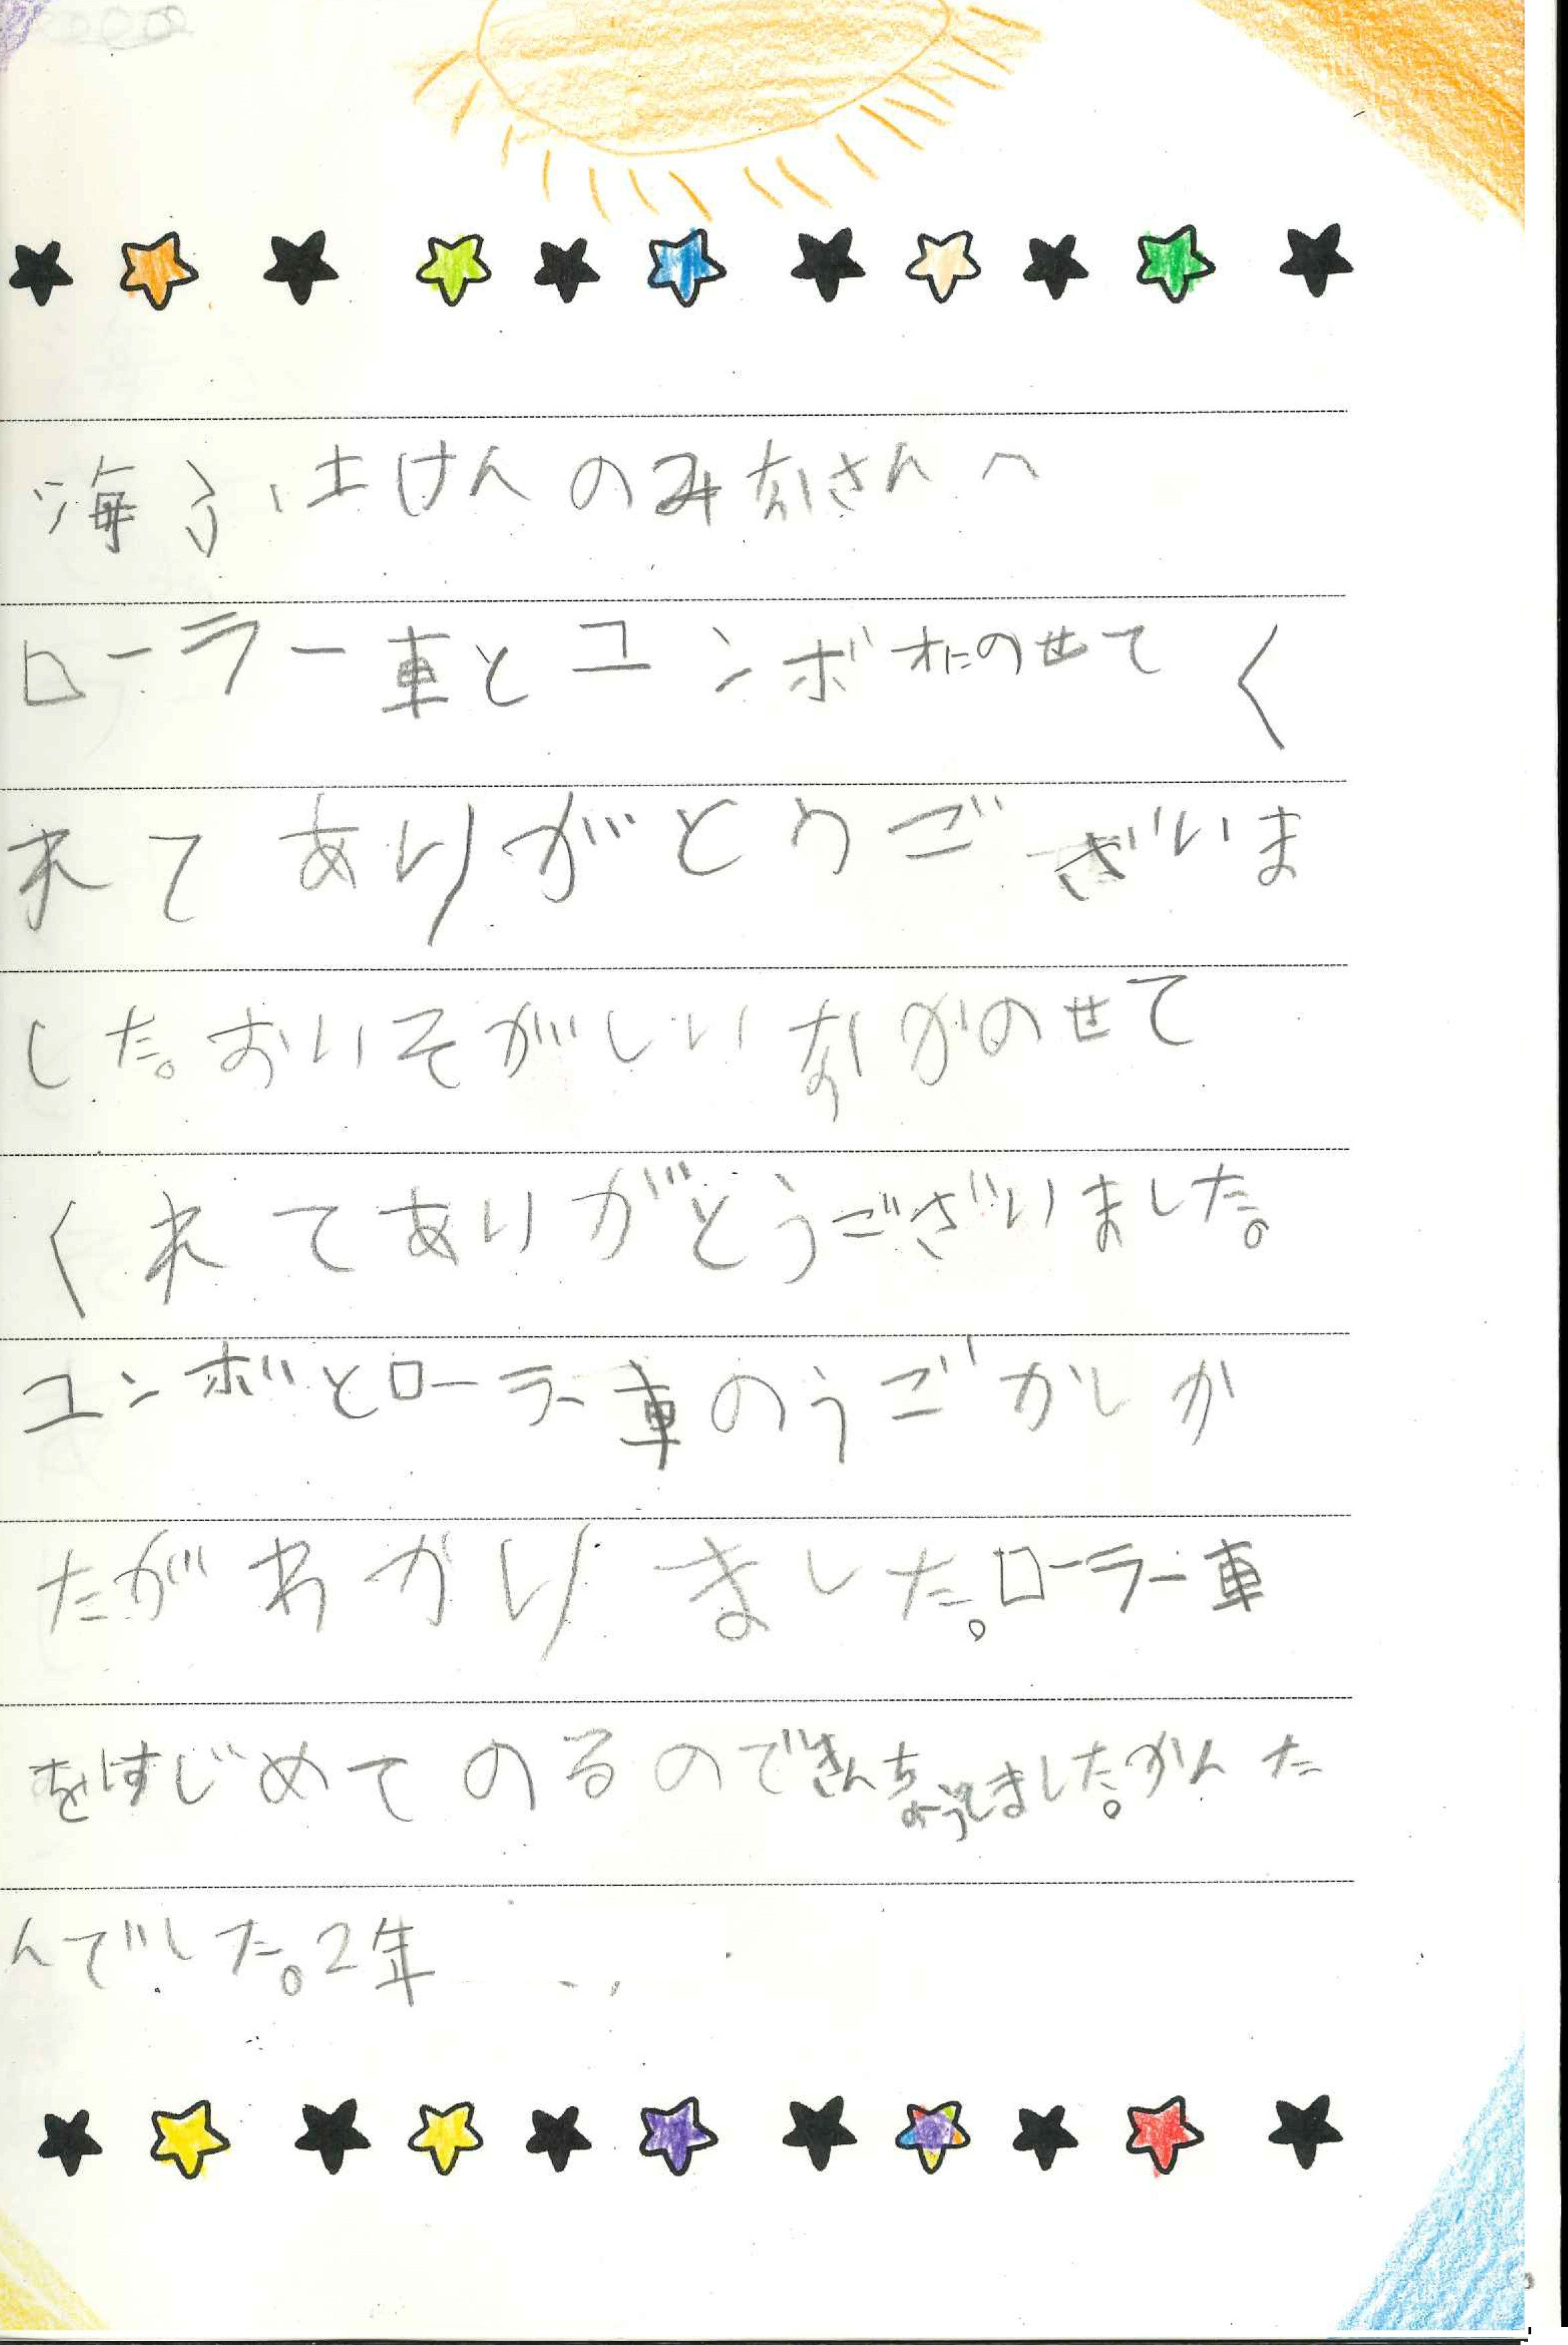 海ふ土けんのみなさんへ
ローラー車とユンボにのせてく
れてありがとうございま
した。おいそがしいなかのせて
くれてありがとうございました。
ユンボとローラー車のうごかしか
たがわかりました。ローラー車
をはじめてのるのできんちょうしました。かんた
んでした。2年